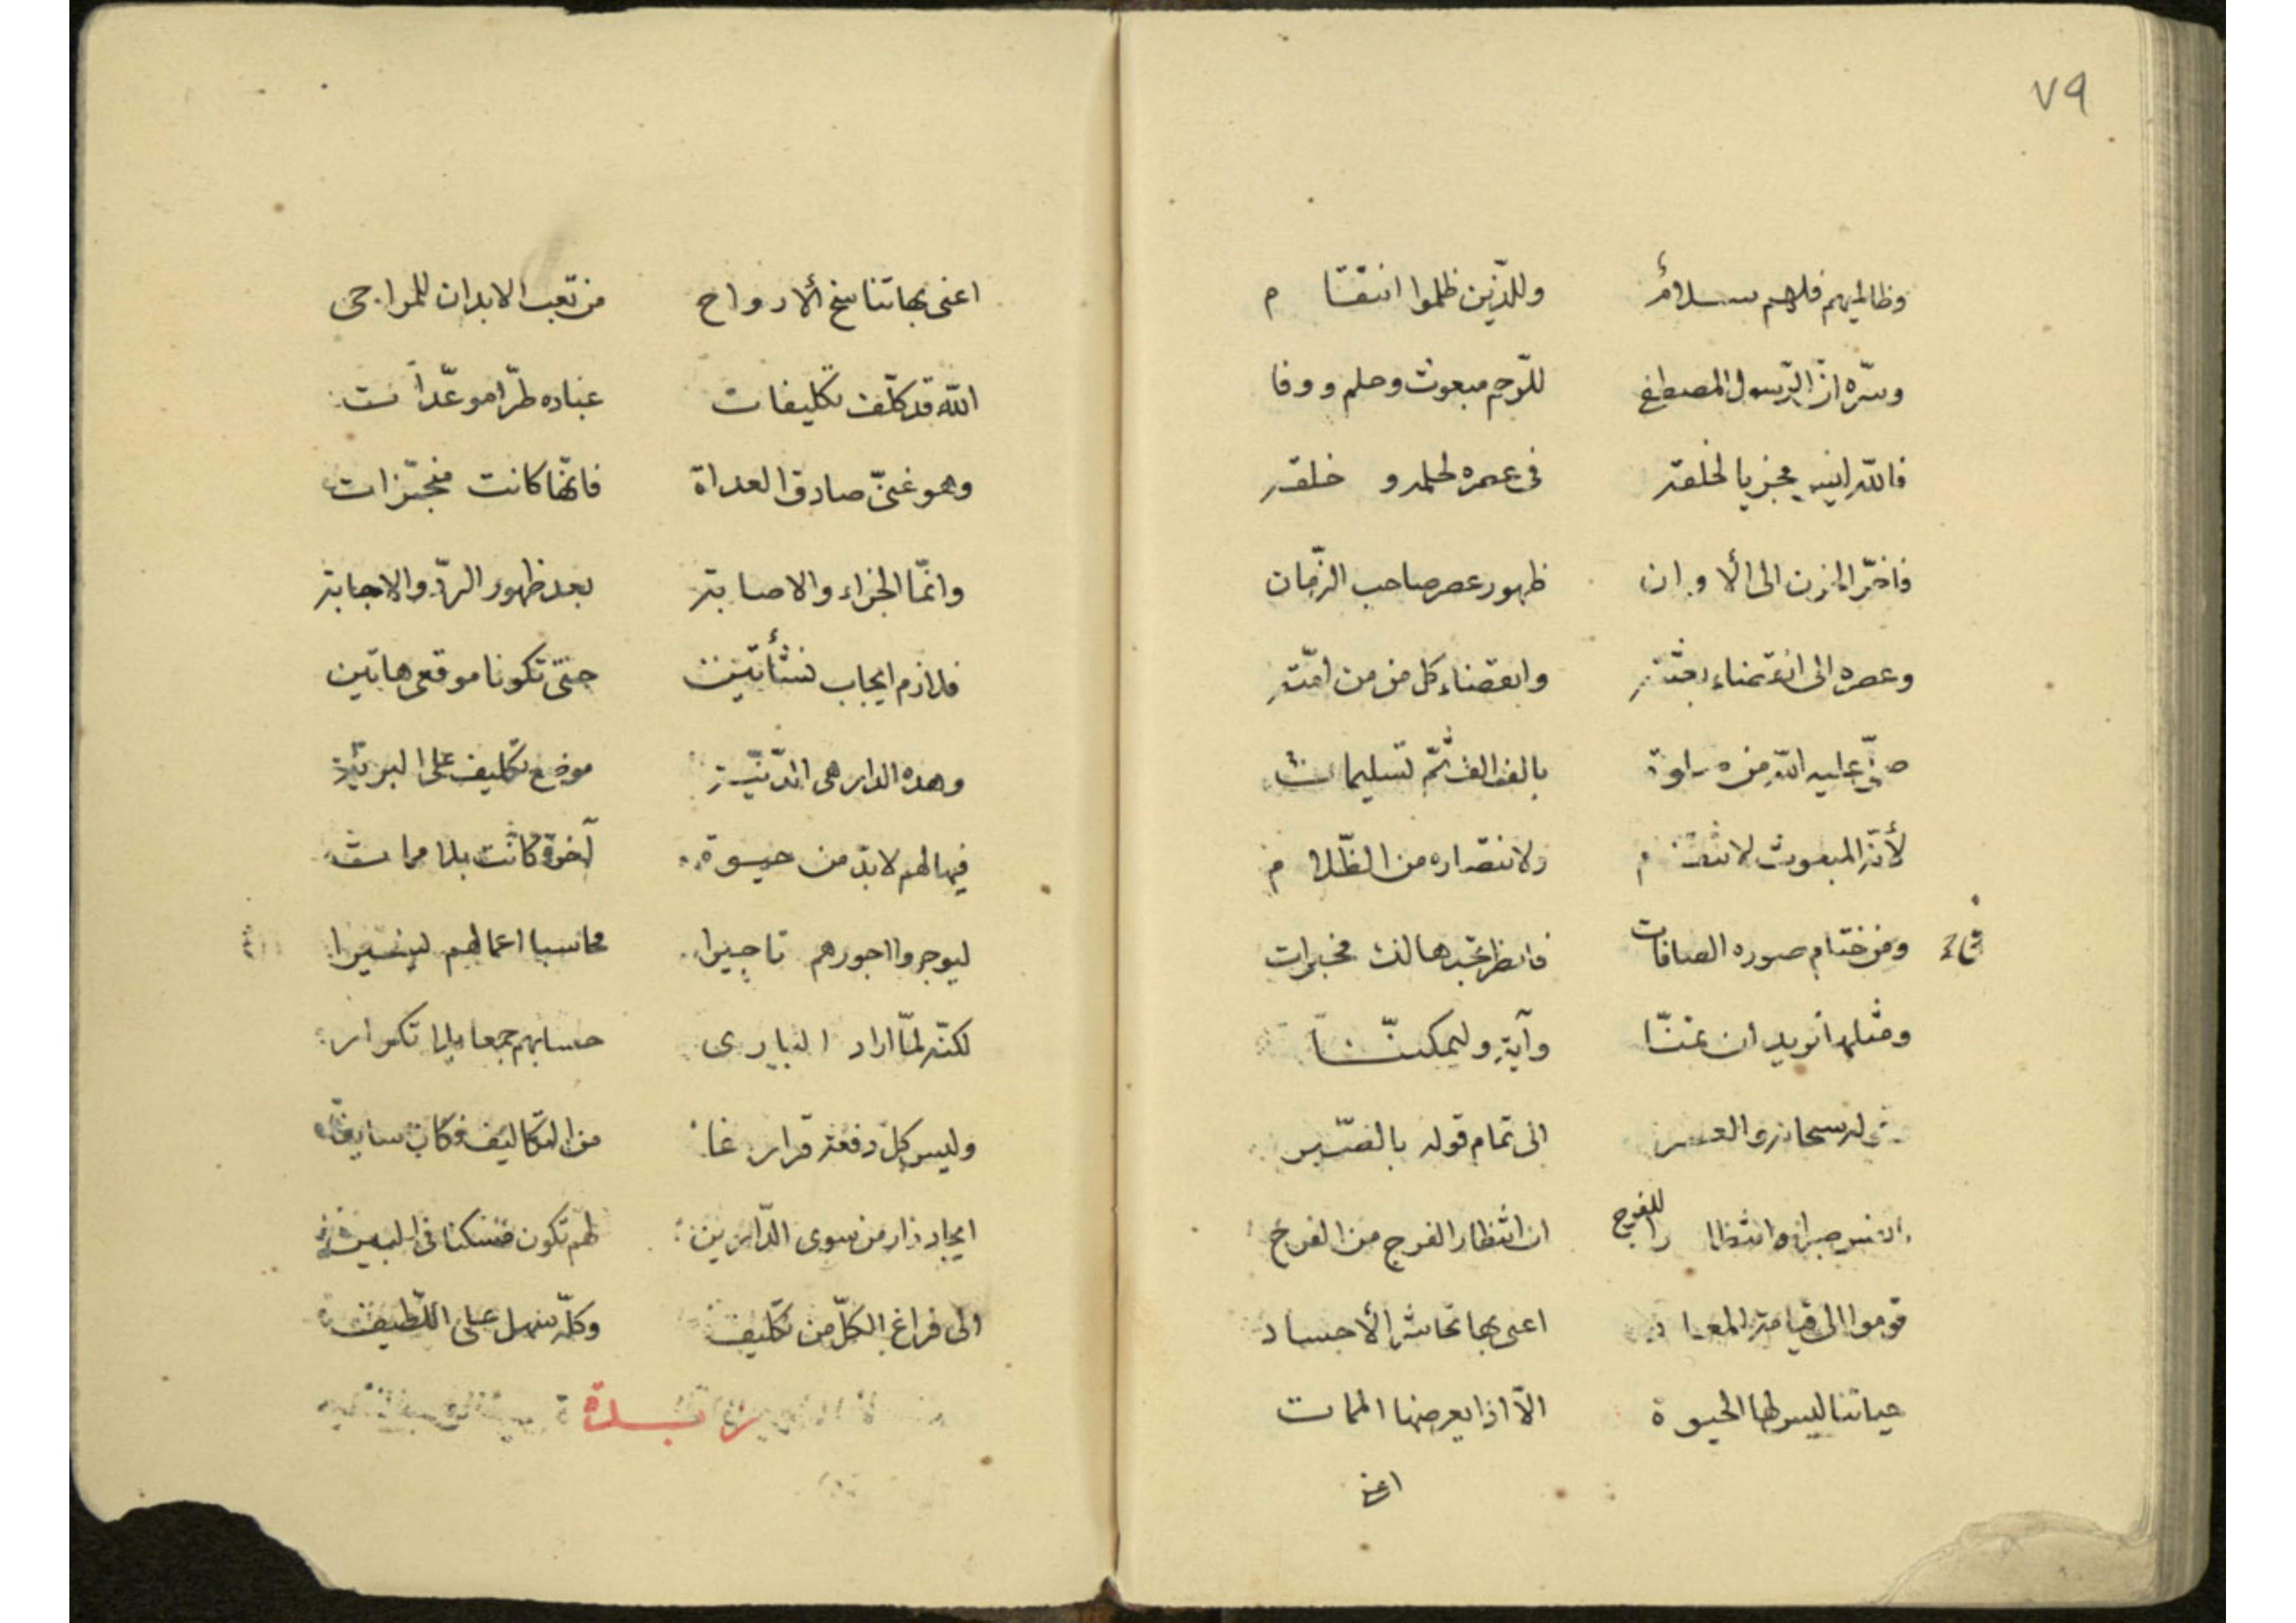 ٧٩
وظالميهم فلهم سلام وللذين ظلموا انتقام
وسرّه انّ الرّسول المصطفى للرّحم مبعوث وحلم ووفا
فالله يجزيا لخلقه فى عصره لحلمه و خلقه
فاخّر الى الأوان ظهور عصر صاحب الزّمان
وعصره الى انقضاء بعثته وانقضاء كل من من امّته
صلّى عليه الله من بالف الف ثمّ تسليمات
لأنّه المبعوث لانتقام ولانتصاره من الظّلام
ومن ختام صوره الصافات فانظر تجدها لك مخبرات
ومثلها نريد ان نمنّا وآية وليمكننّا
سبحانه والعصر الى تمام قوله بالصّبر
وانتظارا للفرج ان انتظار الفرج من الفرج
قوموا الى قيامة المعاد اعنى بها تحاشر الأجساد
حياتنا ليس لها الحيوة الّا اذا يعرضها الممات
اعنى
اعنى بها تناسخ ألارواح من تعب الابدان للمراحى
الله قد كلّف تكليفات عباده طرّا موعّدات
وهو غنىّ صادق العداة فانّها كانت منجّزات
وانّما الجزاء والاصابة بعد ظهور الردّ والاجابة
فلازم ايجاب نشأتين حتى تكونا موقعى هاتين
وهذه الدار هى الدّنيّة موضع تكليف على البريّة
فيها لهم لابدّ من حيوة آخرة كانت بلا ممات
ليوجروا اجورهم تاجيرا محاسبا اعمالهم
لكنّه لمّا اراد البارى حسابهم جمعا بلا تكرار
وليس كلّ دفعة من التكاليف فكان سابغا
ايجاد دار من سوى الدّارين لهم تكون مسكنا فى البين
الى فراغ الكلّ من تكليف وكلّه سهل على اللّطيف
زبدة